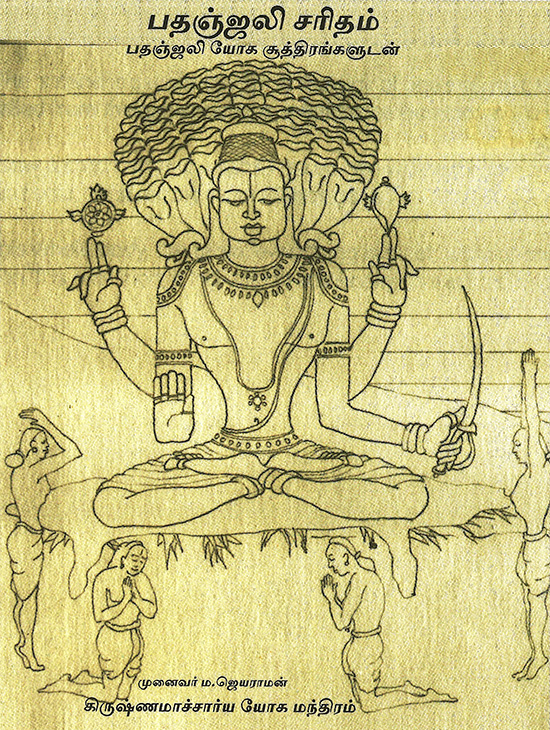 பதஞ்ஜலி சரிதம்
பதஞ்ஜலி யோக சூத்திரங்களுடன்
முனைவர் ம.ஜெயராமன்
கிருஷ்ணமாச்சார்ய யோக மந்திரம்